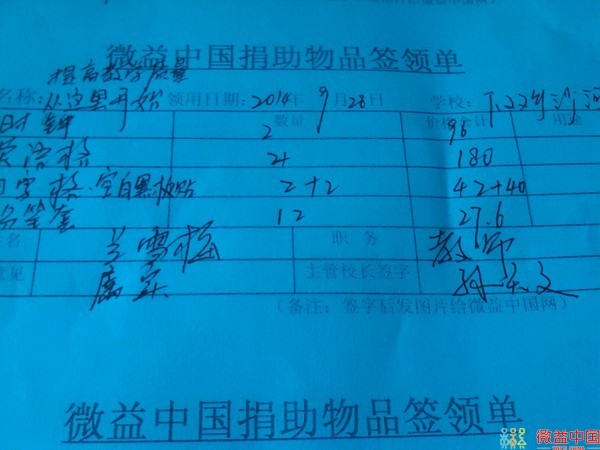 微益中国捐助物品签领单
提高教学质量
名称:从这里开始 领用日期:2014年9月28日 学校:
数量 价格合计 用途
时钟 2 96
英语格 4 180
田字格,空白黑板贴 2+2 42+40
笔套 12 27.6
姓名 兰雪梅 职务 教师
意见 属实 主管校长签字
(备注:签字后发图片给微益中国网)
微益中国捐助物品签领单
微益中国